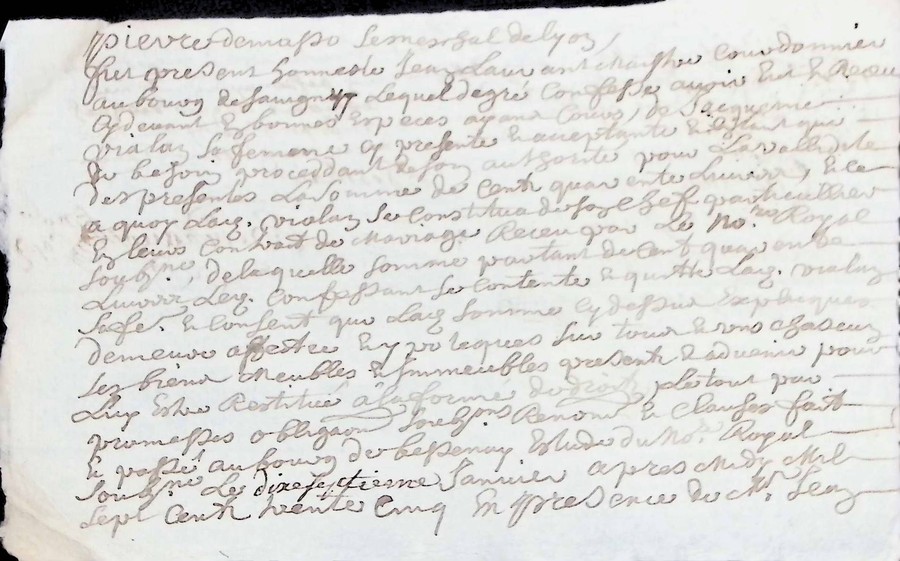 pierre demasso senechal de lyon /
fut present honneste Jean Laurant Maistre Courdonnier
au bourg de Sauvigny Lequel de gré Confesse avoir Eut & Receu
Cy devant En bonnes Especes ayant Cours, de Jacquemie
vialay Sa femme Cy presente & acceptante & Estant que
de besoin proceddant de son authorité pour La vallidite
des presentes La Somme de Cent quarente Livres, En ce
a quoy Lad. vialay Se Constitua de son Chef particullier
En leur Contrait de Mariage Receu par Le No.re Royal
Soubz.né, de laquelle Somme partant de Cent quarente
Livres Led. Confessant Se Contente & quitte Lad. vialay
Sa fe. & Consent que Lad. Somme Cy dessus Expliquée
demeure affectée & ypotequée Sur tous & uns chascun
Ses biens Meubles & Immeubles presents & advenir pour
Luy Estre Restitué à la forme du droit, ple tout par
promesses obligaons Soubzons Renons & Clauses fait
& passé au bourg de bessenay Estude du No.re Royal
Soubz.né Le dixseptieme Janvier apres Midy Mil
Sept Cents trente Cinq En presence de Mr. Jean